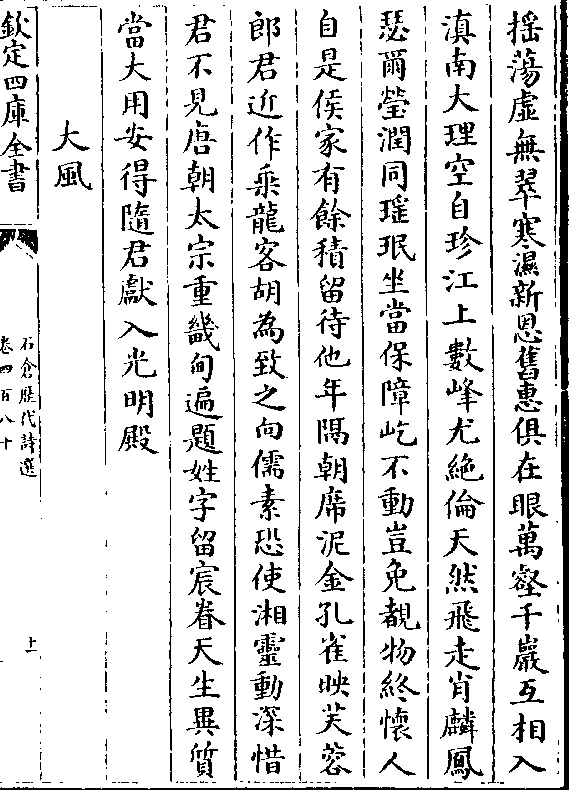 揺蕩虚無翠寒濕新恩舊惠俱在眼萬壑千巖互相入
滇南大理空自珍江上數峰尤絶倫天然飛走肖麟鳳
瑟爾瑩潤同瑶珉坐當保障屹不動豈免覩物終懷人
自是侯家有餘積留待他年隔朝席泥金孔雀映芙蓉
郎君近作乘龍客胡為致之向儒素恐使湘靈動深惜
君不見唐朝太宗重畿甸遍題姓字留宸眷天生異質
當大用安得隨君獻入光明殿
大風
欽定四庫全書
石倉歷代詩選
卷四百八十
十一